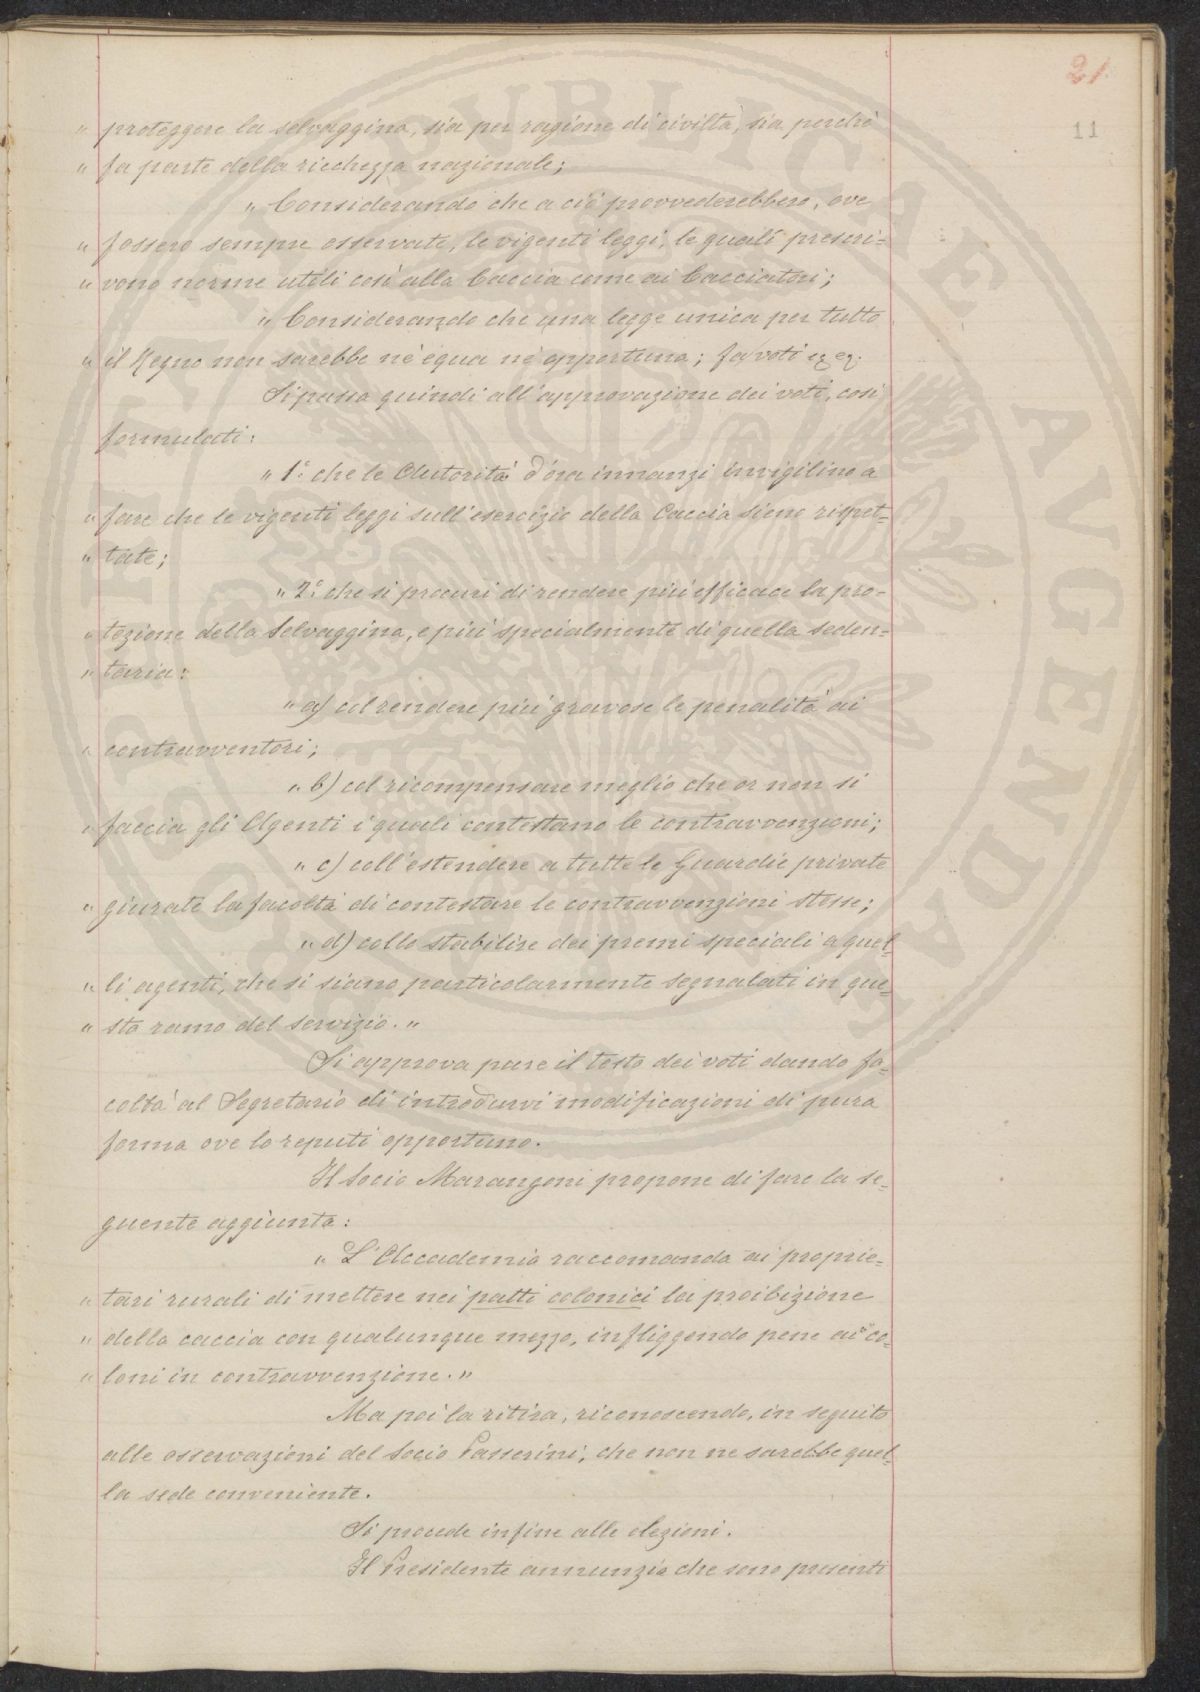 21
11
" proteggere la selvaggina, sia per ragione di civiltà, sia perchè
" fa parte della ricchezza nazionale;
" Considerando che a ciò provvederebbero, ove
" fossero sempre osservate, le vigenti leggi, le quali prescri=
" vono norme utili così alla Caccia come ai Cacciatori;
" Considerando che una legge unica per tutto
" il Regno non sarebbe nè equa nè opportuna; fa voti
Si passa quindi all'approvazione dei voti, così
formulati:
" 1.° che le Autorità d'ora innanzi invigilino a
" fare che le vigenti leggi sull'esercizio della Caccia sieno rispet=
" tate;
" 2.° che si procuri di rendere più efficace la pro=
" tezione della Selvaggina, e più specialmente di quella seden=
" taria:
" a) col rendere più gravose le penalità ai
" contravventori;
" b) col ricompensare meglio che or non si
" faccia gli Agenti i quali contestano le contravvenzioni;
" c) coll'estendere a tutte le Guardie private
" giurate la facoltà di contestare le contravvenzioni stesse;
" d) collo stabilire dei premi speciali a quel=
" li agenti, che si siano particolarmente segnalati in que=
" sto ramo del servizio. "
Si approva pure il testo dei voti dando fa=
coltà al Segretario di introdurvi modificazioni di pura
forma ove lo reputi opportuno.
Il Socio Marangoni propone di fare la se=
guente aggiunta:
" L'Accademia raccomanda ai proprie=
" tari rurali di mettere nei patti colonici la proibizione
" della caccia con qualunque mezzo, infliggendo pene ai co=
" loni in contravvenzione. "
Ma poi la ritira, riconoscendo, in seguito
alle osservazioni del Socio Passerini, che non ne sarebbe quel=
la sede conveniente.
Si procede infine alle elezioni.
Il Presidente annunzia che sono presenti